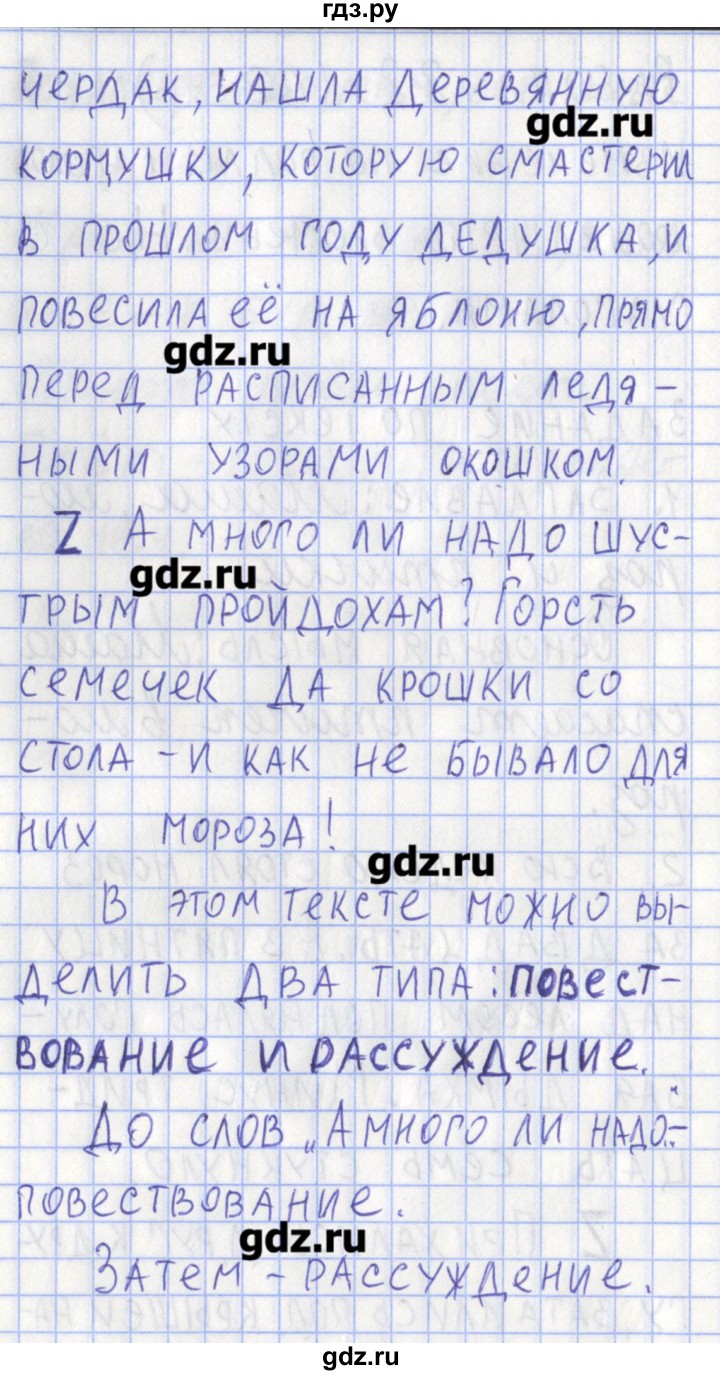 гдз.ру
чердак, нашла деревянную
gdz.ru
кормушку, которую смастерил
в прошлом году дедушка, и
повесила её на яблоню, прямо
gdz.ru
перед расписанным ледя-
ными узорами окошком.
Z А много ли надо шус-
gdz.ru
трым пройдохам? Горсть
семечек да крошки со
стола - и как не бывало для
них мороза!
gdz.ru
В этом тексте можно вы-
делить два типа: повест-
вование и рассуждение.
До слов „А много ли надо..." -
повествование.
gdz.ru
Затем - рассуждение.
gdz.ru